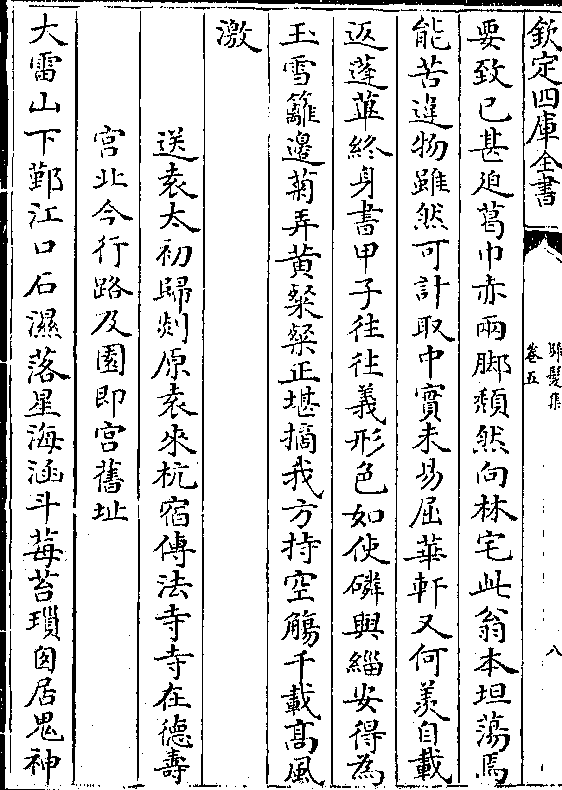 欽定四庫全書
晞髮集
卷五
八
要致已甚迫葛巾赤兩脚頹然向林宅此翁本坦蕩焉
能苦違物雖然可計取中實未易屈華軒又何羨自載
返蓬蓽終身書甲子往往義形色如使磷與緇安得為
玉雪籬邊菊弄黄粲粲正堪摘我方持空觴千載髙風
激
送袁太初歸剡原袁來杭宿傳法寺寺在德壽
宫北今行路及園即宫舊址
大雷山下鄞江口石濕落星海涵斗莓苔瑣囪居鬼神